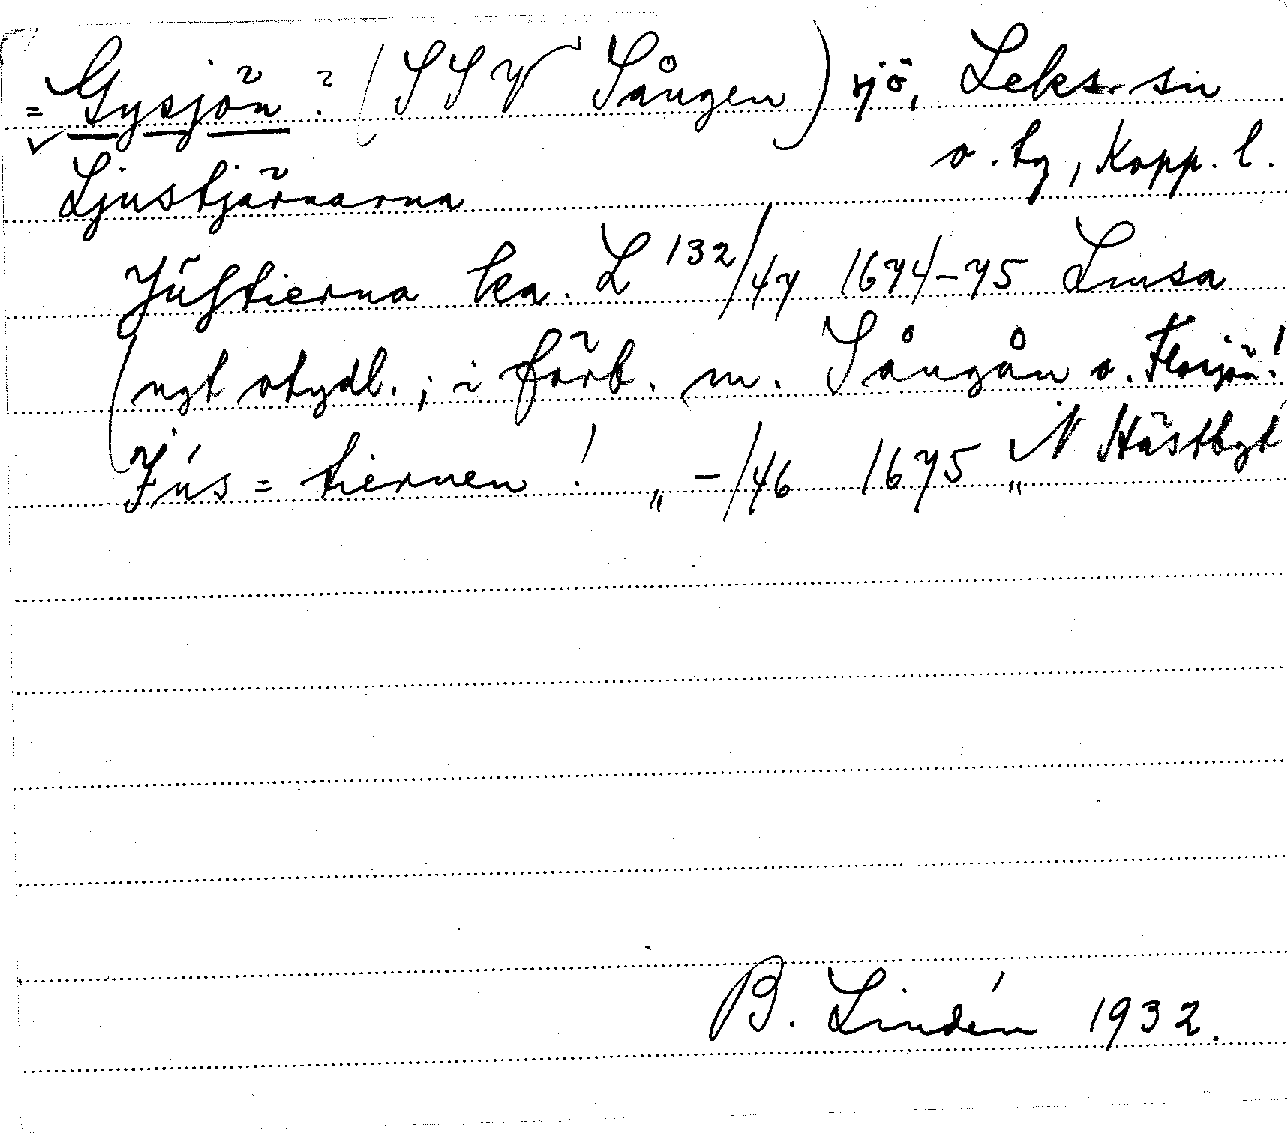 = Gysjön ? (SSV Sången) sjö, Leks. sn
✓ o. tg, Kopp. l.
Ljustjärnarna
Jústierna ka. L 132/47 1674-75 Linsa
(ngt otydl.; i förb. m. Sångån o. Flosjön!
Jús = tiernen! „ -/46 1675 „ N Hästbgt
B. Lindén 1932.